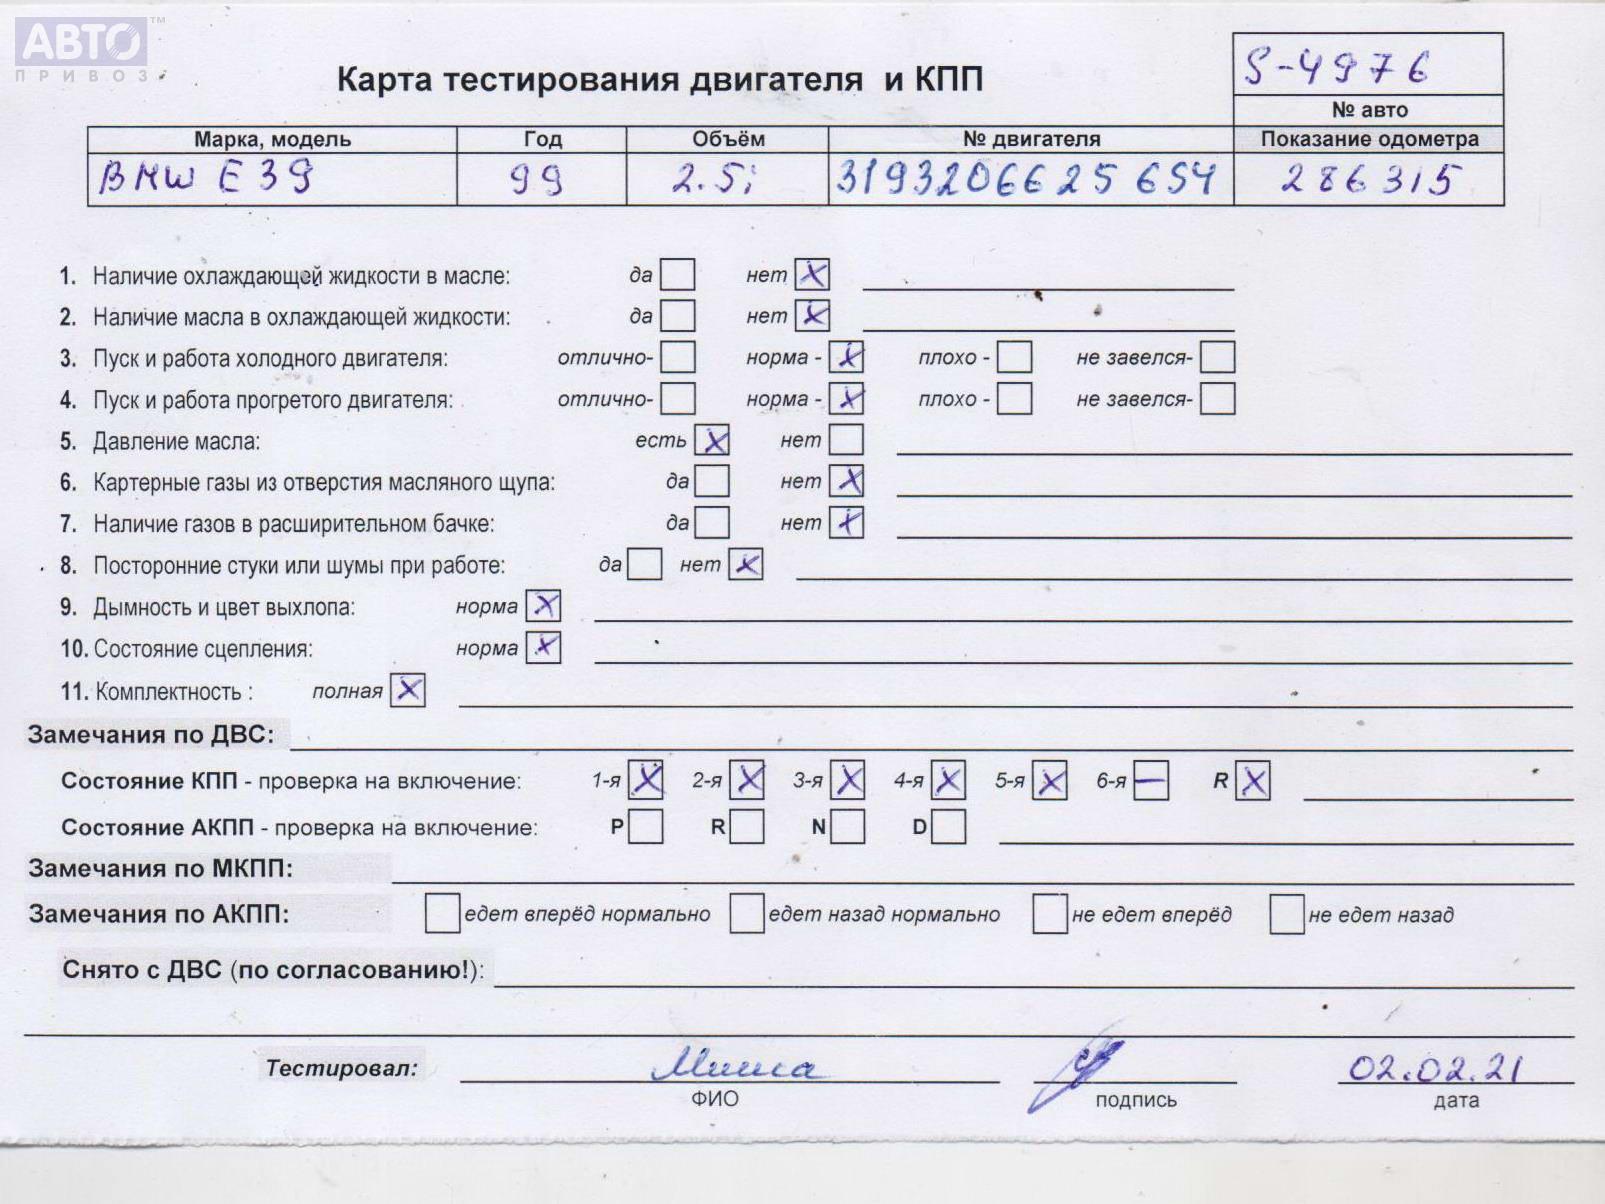 АВТО™
ПРИВОЗ
S-4976
Карта тестирования двигателя и КПП
№ авто
Марка, модель Год Объём № двигателя Показание одометра
BMW E39 99 2.5i 3193206625 6S4 286315
1. Наличие охлаждающей жидкости в масле: да нет X
2. Наличие масла в охлаждающей жидкости: да нет X
3. Пуск и работа холодного двигателя: отлично- норма - X плохо - не завелся-
4. Пуск и работа прогретого двигателя: отлично- норма - X плохо - не завелся-
5. Давление масла: есть X нет
6. Картерные газы из отверстия масляного щупа: да нет X
7. Наличие газов в расширительном бачке: да нет X
8. Посторонние стуки или шумы при работе: да нет X
9. Дымность и цвет выхлопа: норма X
10. Состояние сцепления: норма X
11. Комплектность : полная X
Замечания по ДВС:
Состояние КПП - проверка на включение: 1-я X 2-я X 3-я X 4-я X 5-я X 6-я — R X
Состояние АКПП - проверка на включение: P R N D
Замечания по МКПП:
Замечания по АКПП: едет вперёд нормально едет назад нормально не едет вперёд не едет назад
Снято с ДВС (по согласованию!):
Тестировал: Миша 02.02.21
ФИО подпись дата